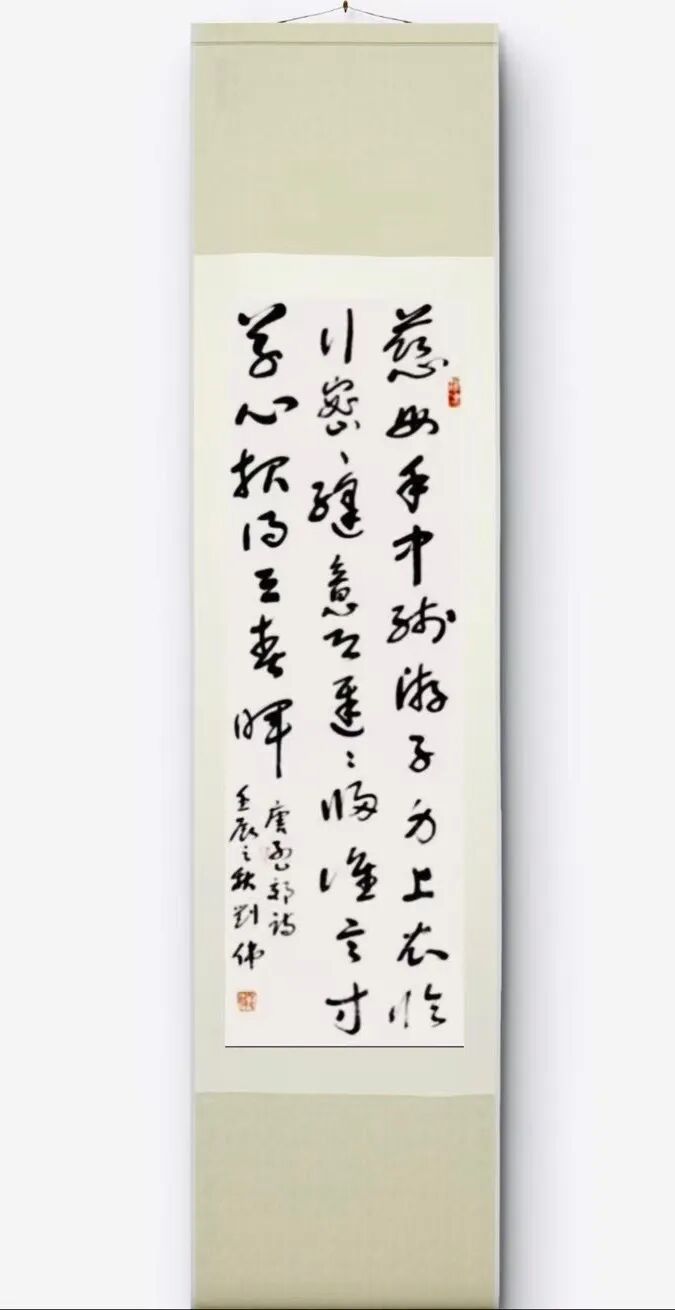 慈母手中綫游子身上衣臨
行密々縫意恐遲々歸誰言寸
草心報得三春暉
唐孟郊詩
壬辰之秋劉偉